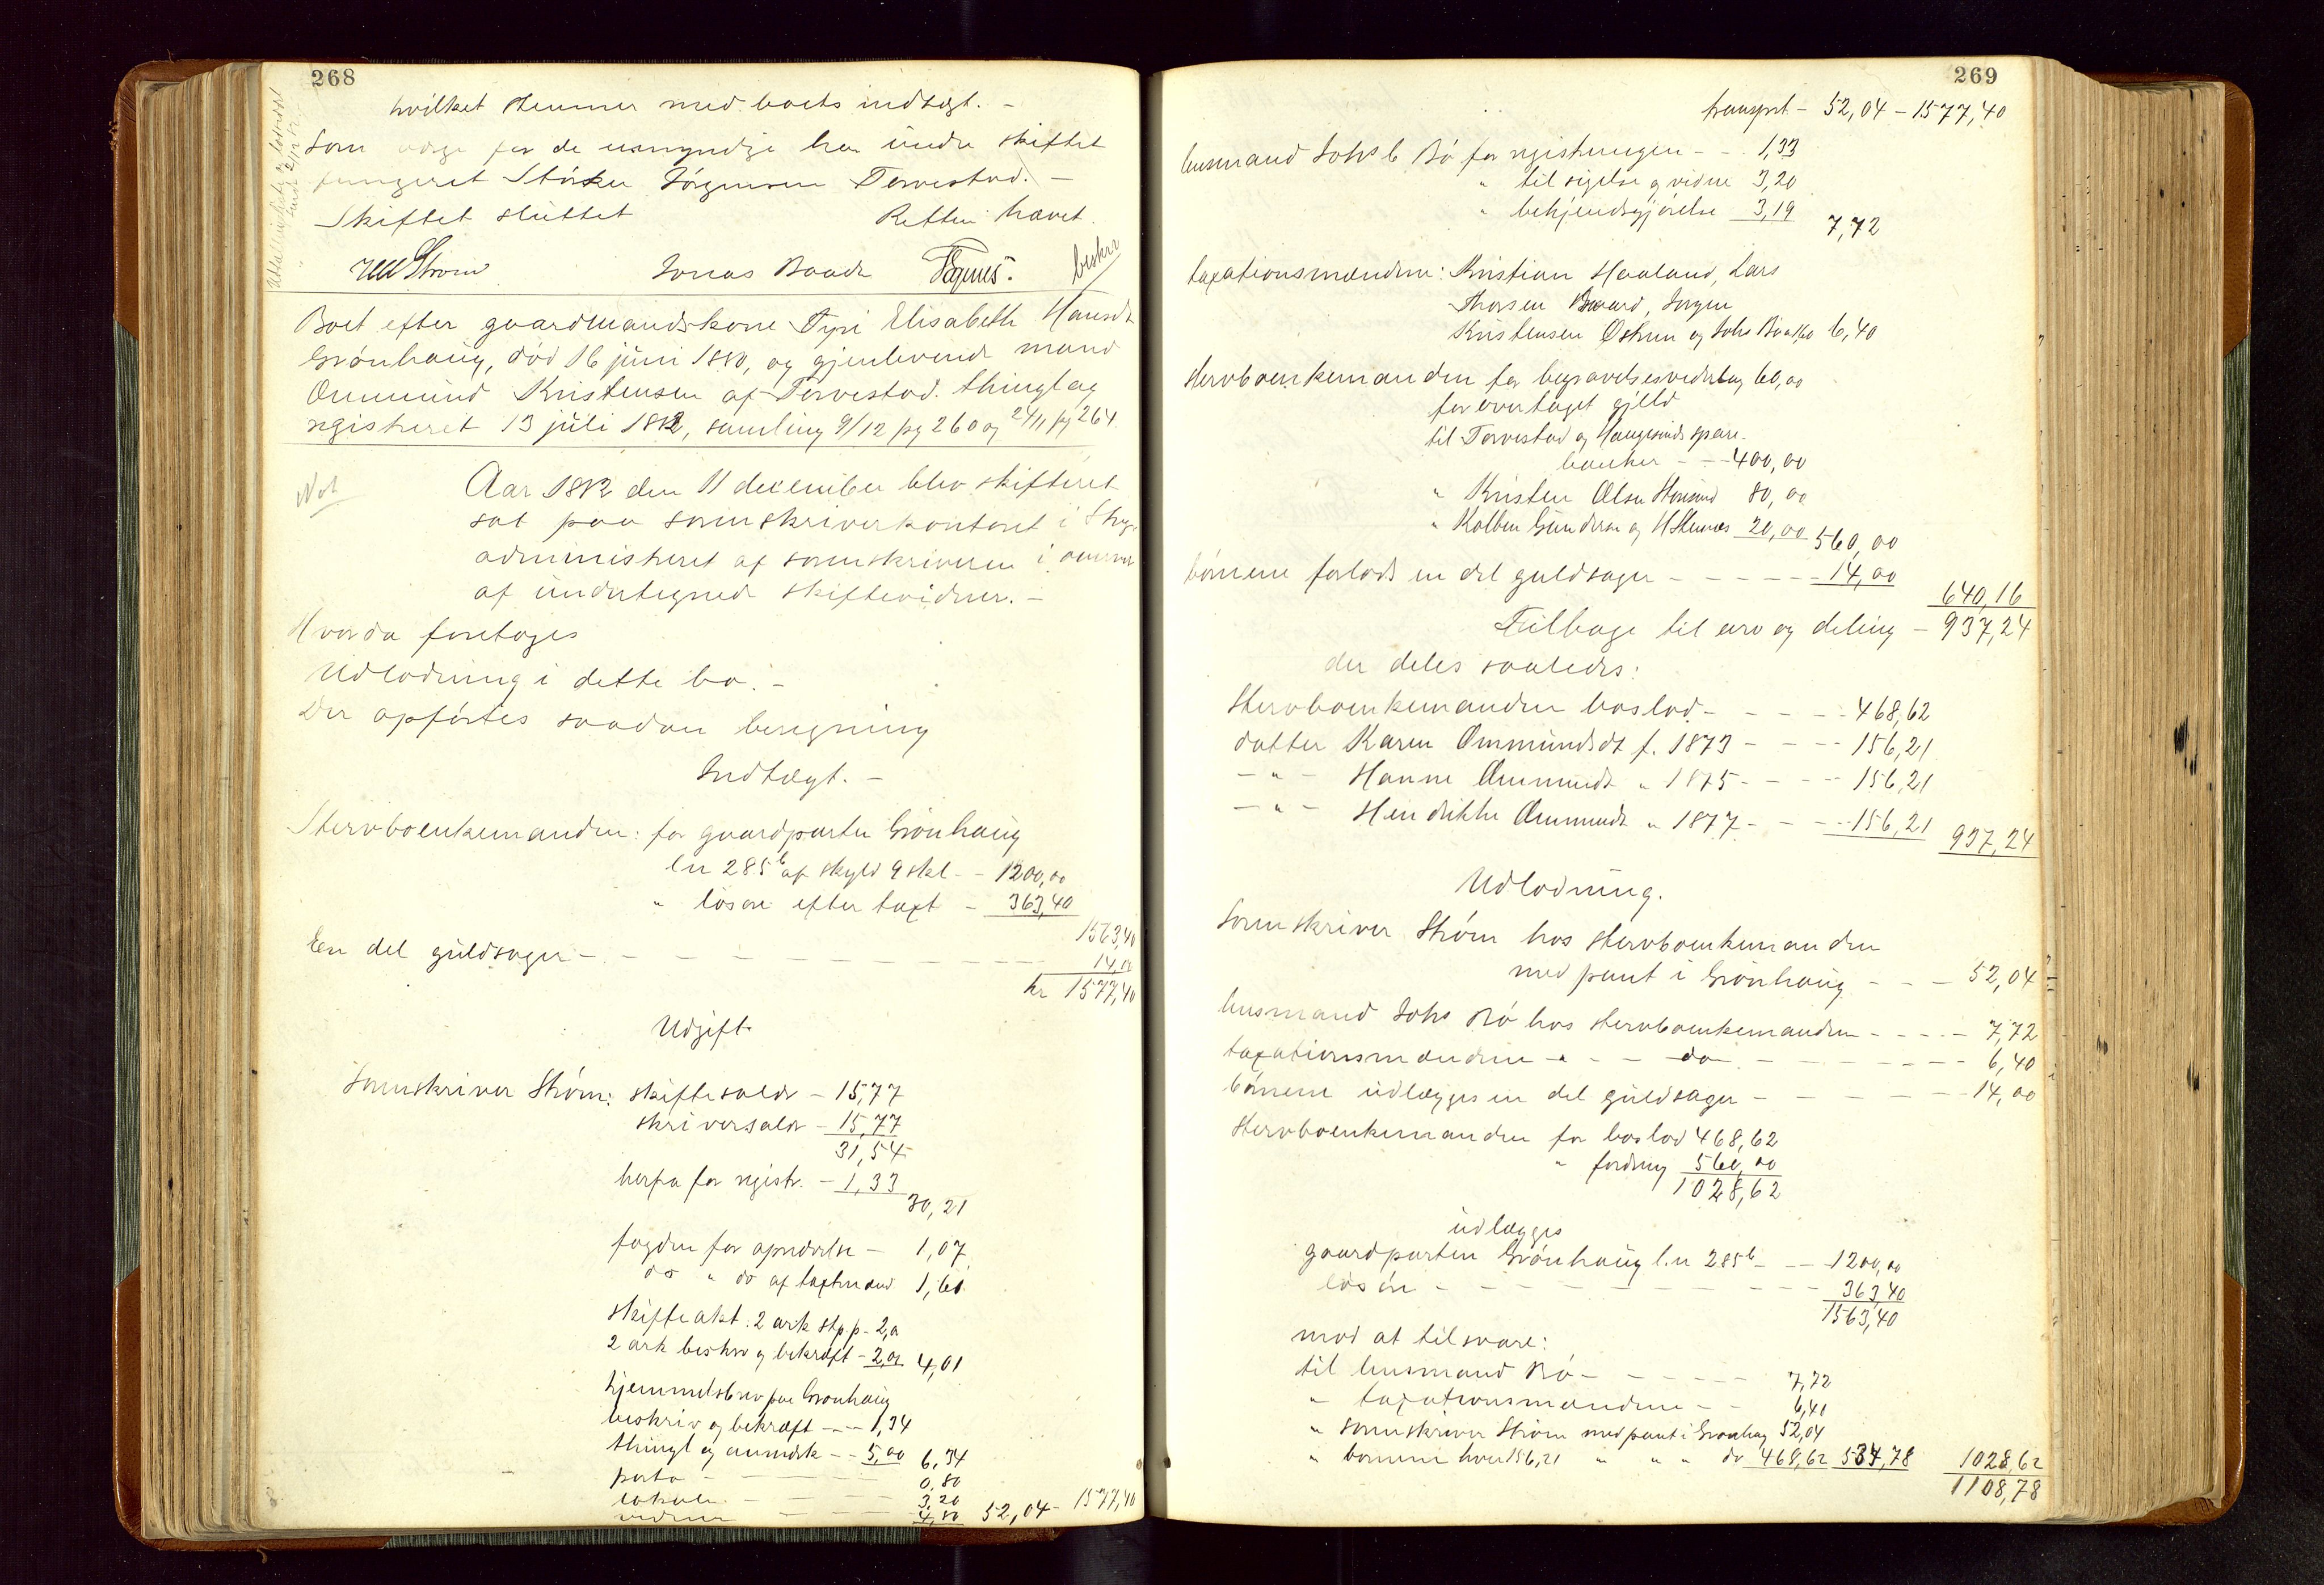 268
hvilket stemmer med boets indtægt. –
Som værge for de umyndige har under skiftet
fungeret Störker Jörgensen Torvestad. –
Skiftet sluttet Retten hævet.
Ström Jonas Baade beskr
Boet efter gaardmandskone Tyri Elisabeth Hansdt
Grönhaug, död 16 juni 1880, og gjenlevende mand
Ommund Kristensen af Torvestad thinglag
registreret 13 juli 1882, samling 9/12 pg 260 og 24/11 pg 264
Not
Aar 1882 den 11 december blev skifteret
sat paa sorenskriverkontoret i
administreret af sorenskriveren i overvær
af undertegnede skiftevidner. –
Hvorda foretoges
Udlodning i dette bo. –
Der opförtes saadan beregning
Indtægt. –
Stervboenkemanden: for gaardparten Grönhaug
ln 285b af skyld 9 skl – – 1200,00
" lösöre efter taxt – 363,40
1563,40
En del guldsager – – – – – 14,00
kr 1577,40
Udgift
Sorenskriver Ström: skiftesalær – 15,77
skriversalær – 15,77
31,54
herfra for registr. – 1,33
30,21
fogden for opnævnelse – 1,07
do " do af taxtmænd 1,60
skifteakt: 2 ark stp p – 2,00
2 ark beskr og bekræft – 2,01 4,01
hjemmelsbrev paa Grönhaug
beskriv og bekræft – – 1,34
thingl og anmærk – – 5,00 6,34
porto – 0,80
lokale – – – 3,20
vidner – – – 4,80 52,04 – 1577,40
269
transprt – 52,04 – 1577,40
husmand Johs Bö for registreringen – – 1,33
" tilsigelse og vidne 3,20
" bekjendtgjörelse 3,19
7,72
taxationsmændene: Kristian Haaland, Lars
Thorsen Bævard, Jörgen
Kristensen Östrem og Johs 6,40
Stervboenkemanden for begravelsesvederlag 60,00
for overtaget gjæld
til Torvestad og Haugesunds spare-
banker – – 400,00
" Kristen Olsen 80,00
" Kolben Gundersen og H Stennes 20,00 560,00
börnene forlods en del guldsager – – – – – 14,00
640,16
Tilbage til arv og deling – 937,24
der deles saaledes:
Stervboenkemanden boslod – – – – – 468,62
datter Karen Ommundsdt f. 1873 – – – – 156,21
– " – Hanne Ommundsdt " 1875 – – – – 156,21
– " – Hendrikke Ommundsdt " 1877 – – – – 156,21 937,24
Udlodning.
Sorenskriver Ström hos stervboenkemanden
med pant i Grönhaug – – – 52,04
husmand Johs Bö hos stervboenkemanden – – – – 7,72
taxationsmændene – " – – do – – – – – 6,40
börnene udlægges en del guldsager – – – – – 14,00
Stervboenkemanden for boslod 468,62
" fordring 560,00
1028,62
udlægges
gaardparten Grönhaug l.n 285b – – – 1200,00
lösöre – – – – – – – 363,40
1563,40
mod at tilsvare:
til husmand Bö – – – – – 7,72
" taxationsmændene – – 6,40
" sorenskriver Ström med pant i Grönhaug 52,04
" börnene hver 156,21 " " " do 468,62 534,78 1028,62
1108,78